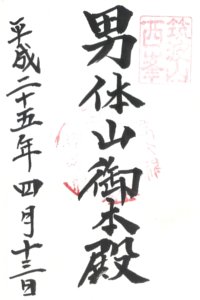 筑波山
西峯
男体山御本殿
平成二十五年四月十三日